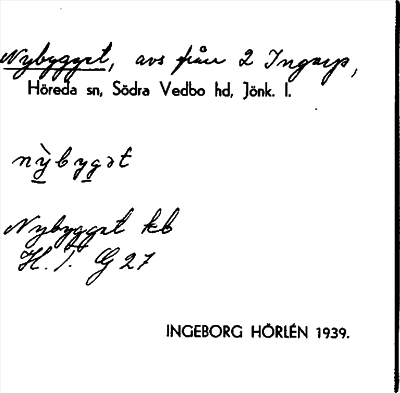 Nybygget, avs från 2 Ingarp,
Höreda sn, Södra Vedbo hd, Jönk. l.
nỳbygət
Nybygget kb
H. T. G 27
INGEBORG HÖRLÉN 1939.